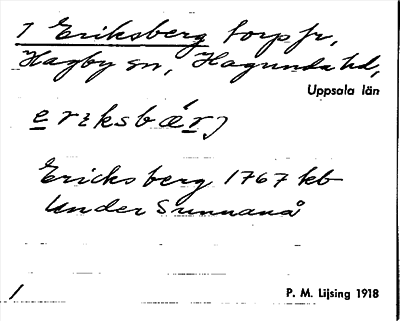 1 Eriksberg torp fr,
Hagby sn, Hagunda hd,
Uppsala län
eriksbærj
Ericksberg 1767 kb
Under Sunnanå
P. M. Lijsing 1918